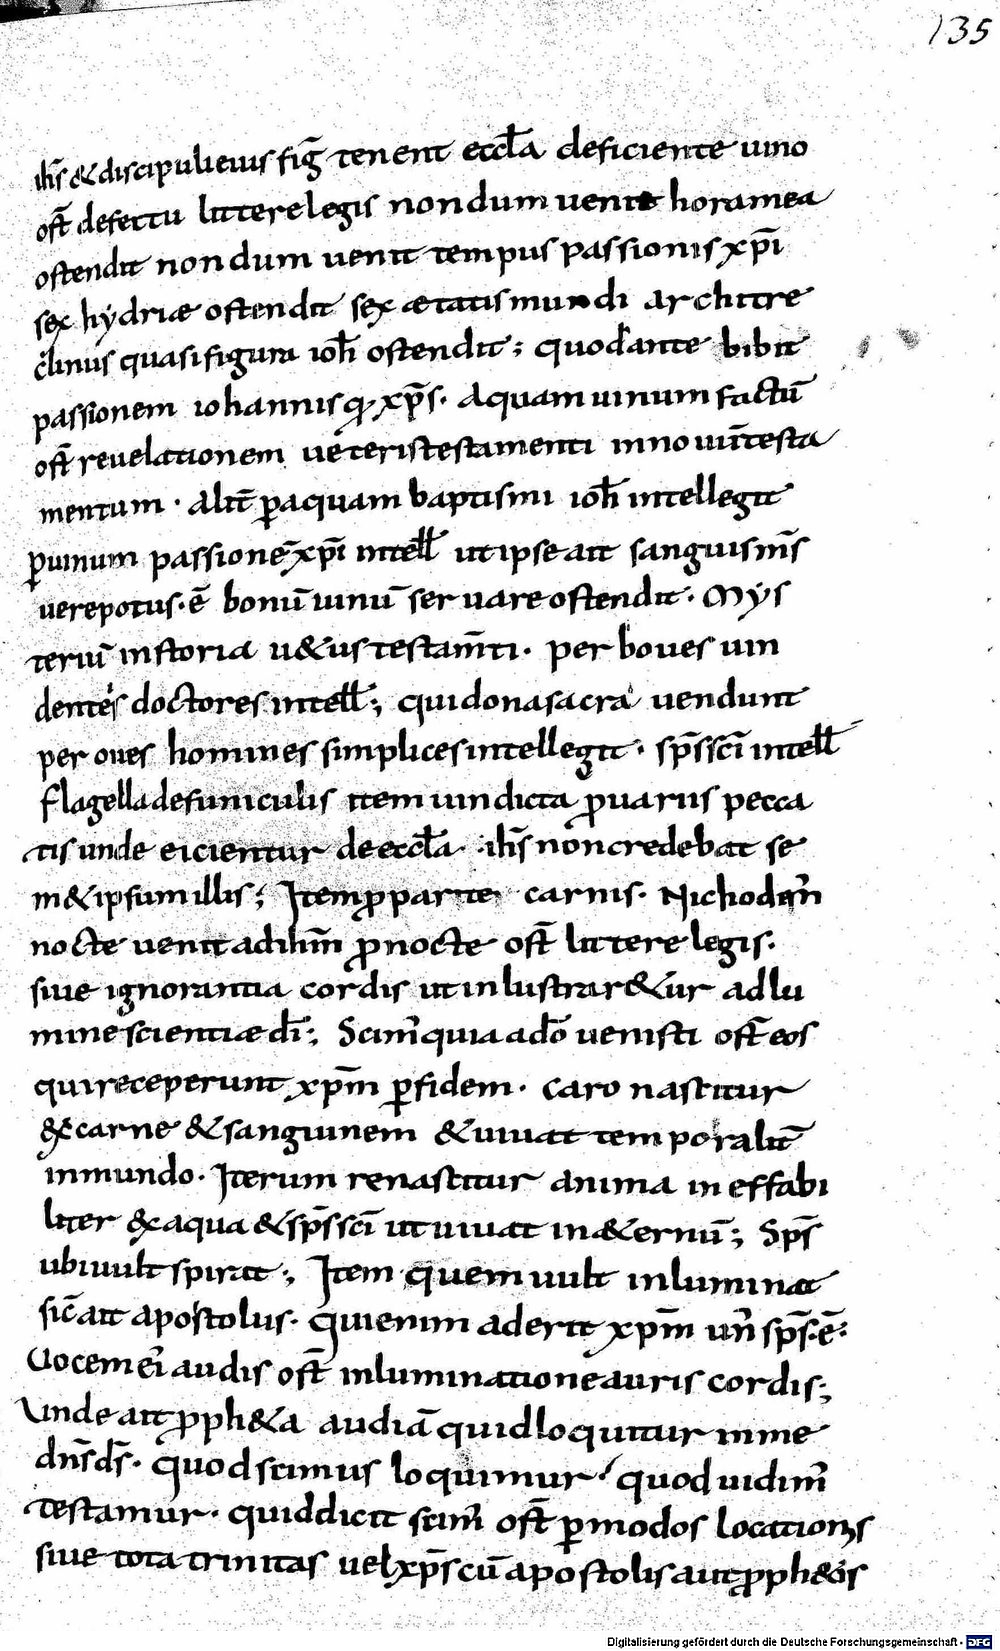 135
ih̅s & discipuli eius fig̅ tenent eccl̅a deficiente uino
ost̅ defectu littere legis nondum uenit hora mea
ostendit nondum uenit tempus passionis xp̅i
sex hydriæ ostendit sex ætatis mundi architre
clinus quasi figura ioh̅ ostendit; quod ante bibit
passionem iohannis q̅ xp̅s. Aquam uinum factu̅
ost̅ reuelationem ueteris testamenti in nouu̅ testa
mentum. alit̅ p̅ aquam baptismi ioh̅ intellegit
p̅ uinum passione̅ xp̅i intell̅ ut ipse ait sanguis m̅s
uere potus. e̅ bonu̅ uinu̅ seruare ostendit. Mys
teriu̅ in storia u&us testam̅ti. per boues uin
dentes doctores intell̅; qui dona sacra uendunt
per oues homines simplices intellegit. sp̅s sc̅i intell̅
flagella de funiculis item uindicta p̅ uariis pecca
tis unde eicientur de eccl̅a. ih̅s non credebat se
m&ipsum illis; Item p̅ parte carnis. Nichodem̅
nocte uenit ad ih̅m p̅ nocte ost̅ littere legis.
siue ignorantia cordis ut inlustrar&ur ad lu
mine scientiæ di̅; Scim̅ quia a do̅ uenisti ost̅ eos
qui receperunt xp̅m p̅ fidem. caro nastitur
&x carne & sanguinem & uiuat temporalit̅
in mundo. Iterum renastitur anima in effabi
liter &x aqua & sp̅s sc̅i ut uiuat in &ernu̅; Sp̅s
ubi uult spirat; Item quem uult inluminat
sic̅ ait apostolus. Qui enim aderit xp̅m un̅ sp̅s. e̅.
Uocem ei̅ audis ost̅ inluminatione auris cordis;
Unde ait p̅ph&a audia̅ quid loquitur in me
dn̅s ds̅. quod scimus loquimur quod uidim̅
testamur. quid dicit scim̅ ost̅ p̅ modos locationis
siue tota trinitas uel xp̅s cu̅ apostolis aut p̅ph&is
Digitalisierung gefördert durch die Deutsche Forschungsgemeinschaft - DFG